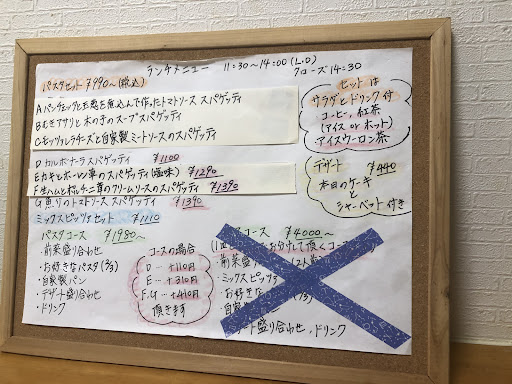 ランチメニュー 11:30〜14:00 (L.O)
クローズ 14:30
パスタセット ¥990〜(税込)
A パンチェッタと玉葱を煮込んで作ったトマトソース スパゲッティ
B むきアサリと木のきのスープスパゲッティ
C モッツァレラチーズと自家製ミートソースのスパゲッティ
D カルボナーラスパゲッティ ¥1100
E カキとホーレン草のスパゲッティ(塩味) ¥1290
F 生ハムとポルチーニ茸のクリームソースのスパゲッティ ¥1390
G 魚介のトマトソース スパゲッティ ¥1390
ミックスピッツァセット ¥1110
セットは
サラダとドリンク付
コーヒー, 紅茶
(アイス or ホット)
アイスウーロン茶
デザート ¥440
本日のケーキ
と
シャーベット付き
パスタコース ¥1980〜
・前菜盛り合わせ
・お好きなパスタ(2/3)
・自家製パン
・デザート盛り合わせ
・ドリンク
コースの場合
D … +110円
E … +310円
F.G … +410円
頂きます
コース ¥4000〜
お分けして頂くコース
前菜盛り
ミックスピッツァ
お好きな
・自家製
デザート盛り合わせ、ドリンク